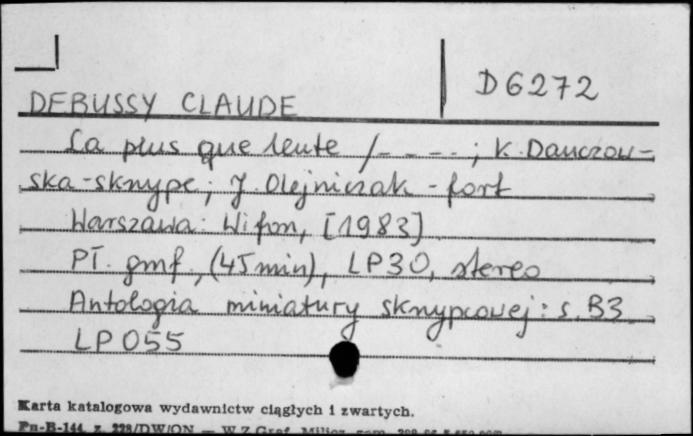 D6272
DEBUSSY CLAUDE
La plus que lente /----; K. Danczow-
ska-skrzypc; J. Olejniczak - fort
Warszawa: Wifon, [1983]
Pł. gmf., (45 min), LP30, stereo
Antologia miniatury skrzypcowej: s. B3
LP055
Karta katalogowa wydawnictw ciągłych i zwartych.
Pu-B-144, z. 228/DW/ON — WZGraf.